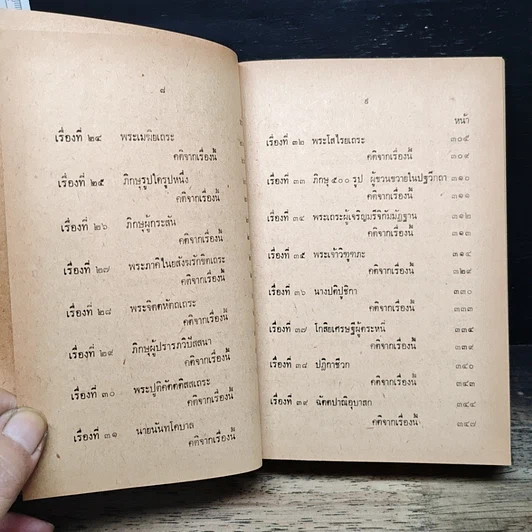 ๘
เรื่องที่ ๒๔ พระเมฆิยเถระ
คติจากเรื่องนี้
เรื่องที่ ๒๕ ภิกษุรูปใดรูปหนึ่ง
คติจากเรื่องนี้
เรื่องที่ ๒๖ ภิกษุผู้กระสัน
คติจากเรื่องนี้
เรื่องที่ ๒๗ พระภาคิไนยสังฆรักขิตเถระ
คติจากเรื่องนี้
เรื่องที่ ๒๘ พระจิตตหัตถเถระ
คติจากเรื่องนี้
เรื่องที่ ๒๙ ภิกษุผู้ปรารภวิปัสสนา
คติจากเรื่องนี้
เรื่องที่ ๓๐ พระปูติคัตตติสสเถระ
คติจากเรื่องนี้
เรื่องที่ ๓๑ นายนันทโคบาล
คติจากเรื่องนี้
๙
หน้า
เรื่องที่ ๓๒ พระโสไรยเถระ ๓๐๕
คติจากเรื่องนี้ ๓๐๙
เรื่องที่ ๓๓ ภิกษุ ๕๐๐ รูป ผู้ขวนขวายในปฐวีกถา ๓๑๐
คติจากเรื่องนี้ ๓๑๑
เรื่องที่ ๓๔ พระเถระผู้เจริญมรีจิกัมมัฏฐาน ๓๑๒
คติจากเรื่องนี้ ๓๑๓
เรื่องที่ ๓๕ พระเจ้าวิฑูฑภะ ๓๑๔
คติจากเรื่องนี้ ๓๒๙
เรื่องที่ ๓๖ นางปติปูชิกา ๓๓๐
คติจากเรื่องนี้ ๓๓๓
เรื่องที่ ๓๗ โกสิยเศรษฐีผู้ตระหนี่ ๓๓๔
คติจากเรื่องนี้ ๓๓๙
เรื่องที่ ๓๘ ปาฏิกาชีวก ๓๔๐
คติจากเรื่องนี้ ๓๔๓
เรื่องที่ ๓๙ ฉัตตปาณิอุบาสก ๓๔๔
คติจากเรื่องนี้ ๓๔๗